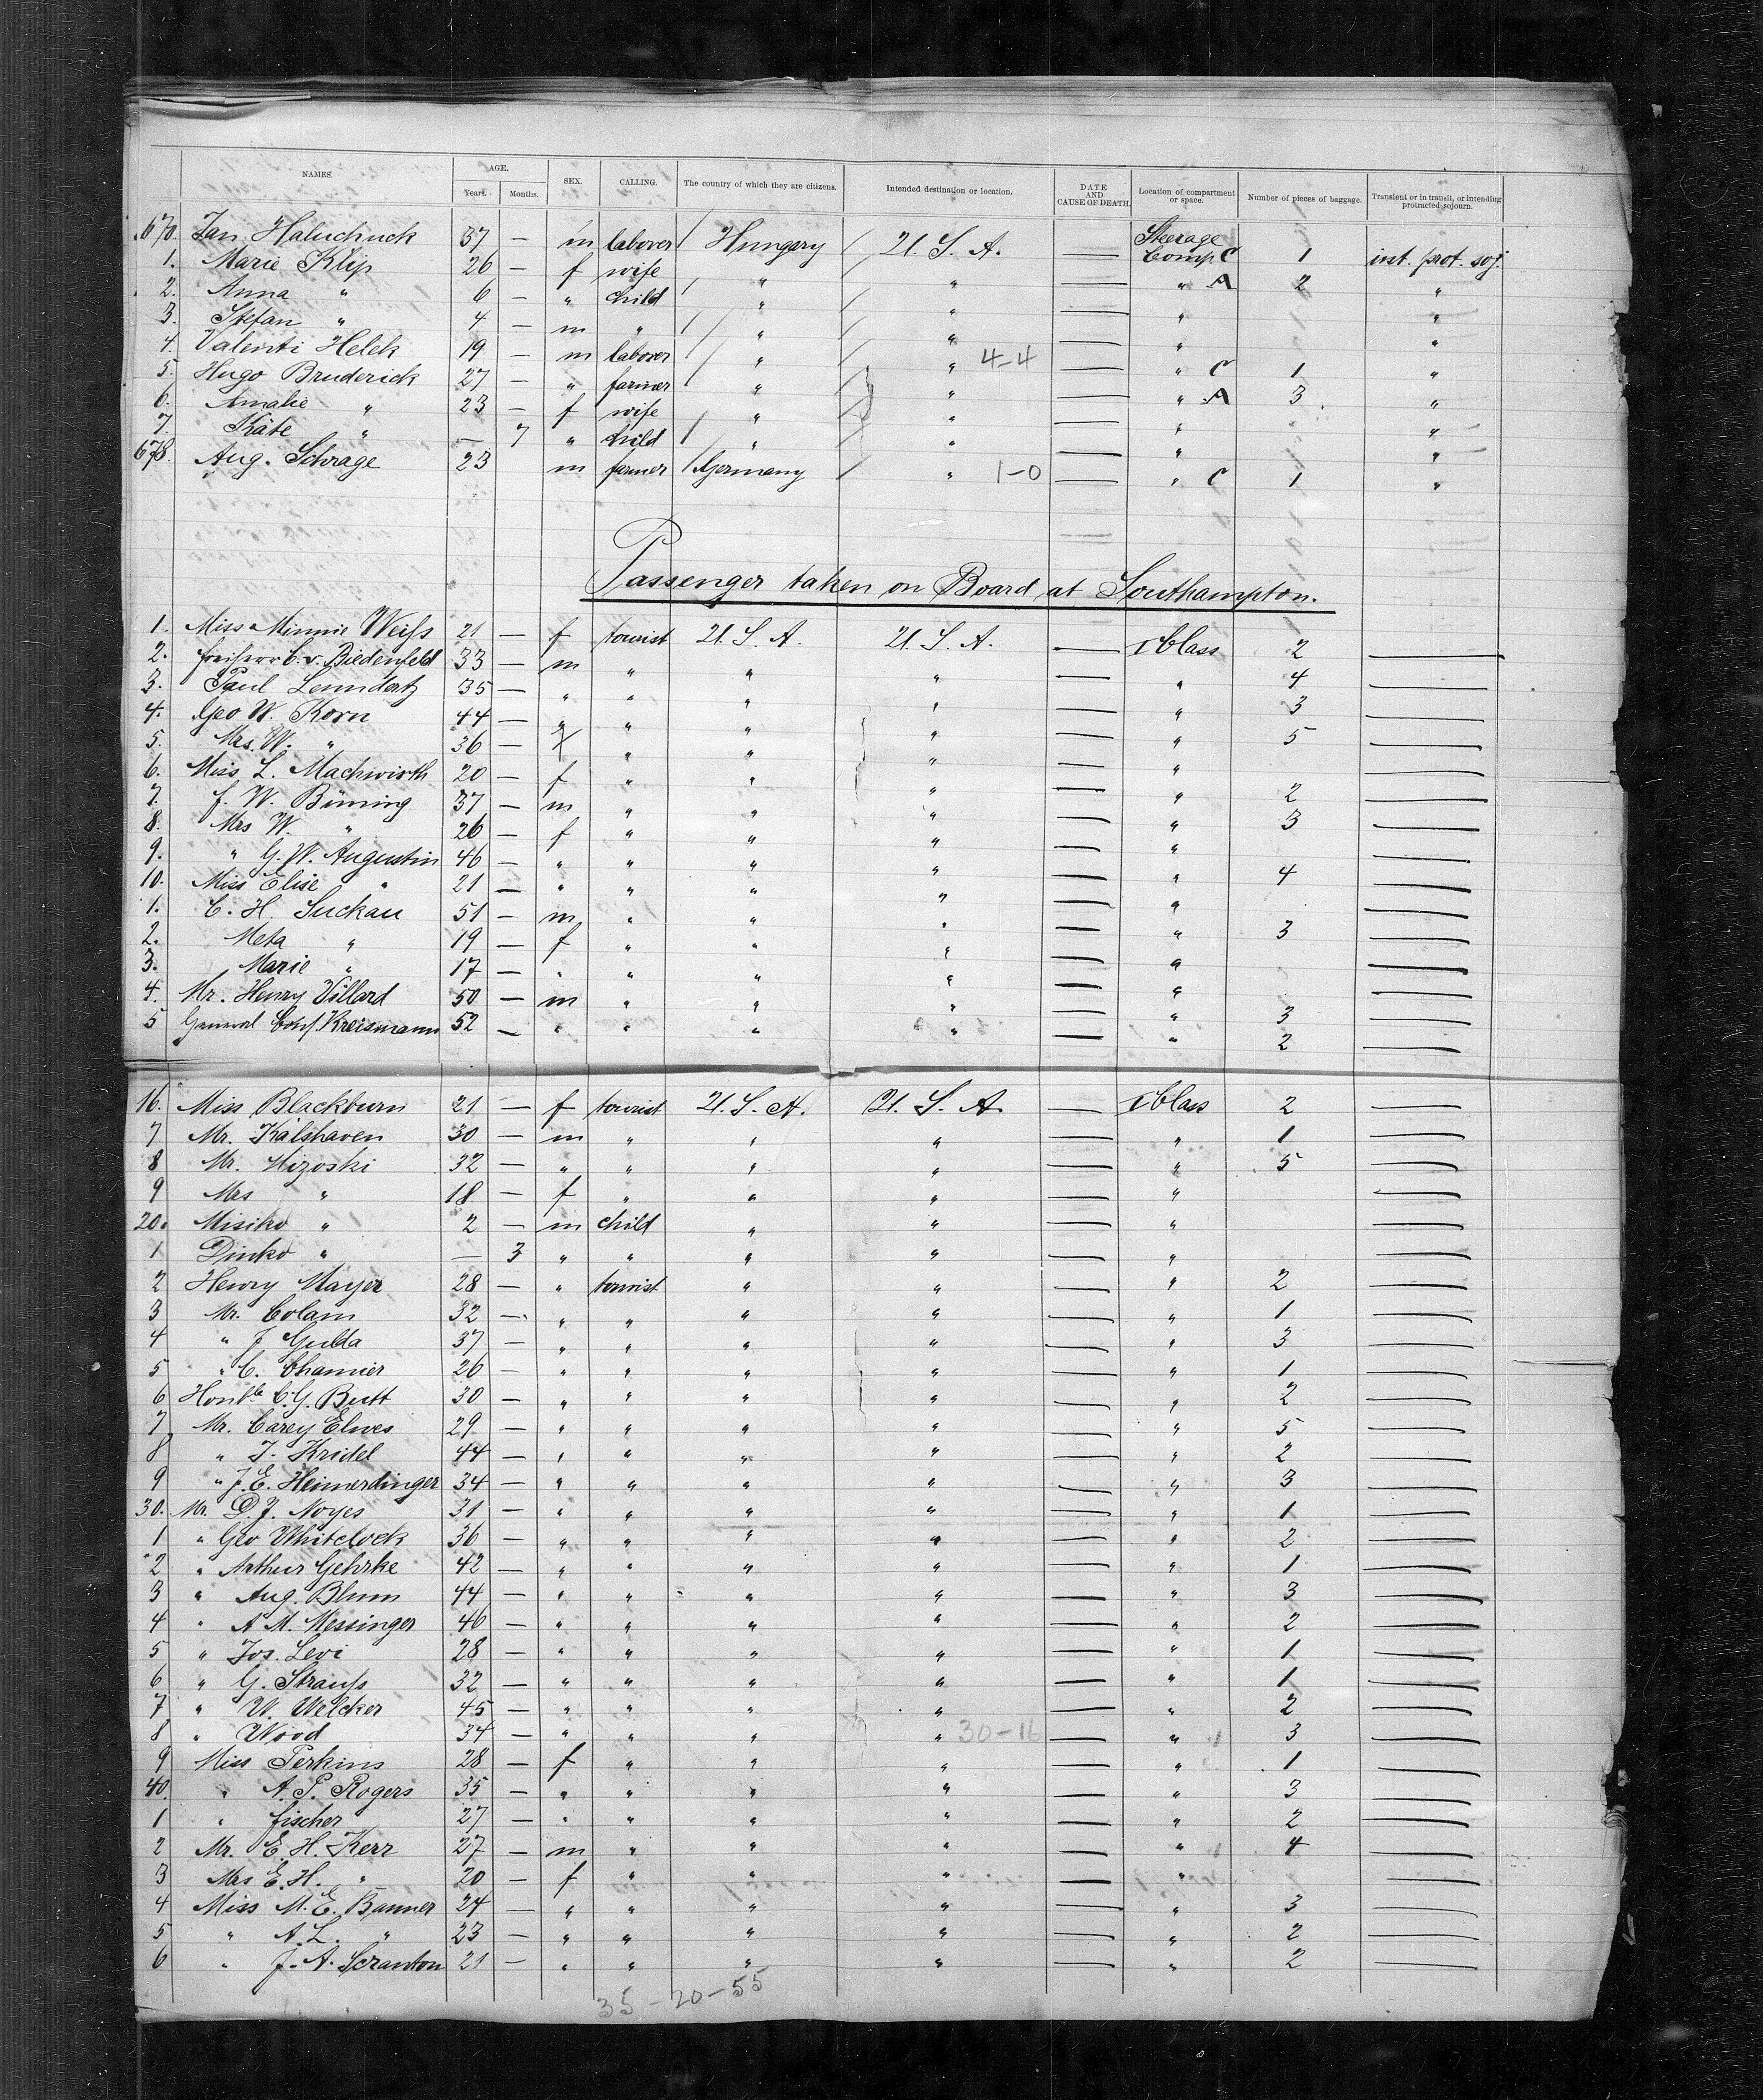 NAMES. AGE. Years. Months. SEX. CALLING. The country of which they are citizens. Intended destination or location. DATE AND CAUSE OF DEATH. Location of compartment or space. Number of pieces of baggage. Transient or in transit, or intending protracted sojourn.
670. Jan Haluchuck 37 — m laborer Hungary U. S. A. — Steerage Comp. C 1 int. prot. soj.
1. Marie Klip 26 — f wife " " — " A 2 "
2. Anna " 6 — " child " " — " "
3. Stefan " 4 — m " " " — " "
4. Valenti Helek 19 — m laborer " " 4-4 — " C 1 "
5. Hugo Bruderick 27 — " farmer " " — " A 3 "
6. Amalie " 23 — f wife " " — " "
7. Käte " — 7 " child " " — " "
678. Aug. Schrage 23 m farmer Germany " 1-0 — " C 1 "
Passenger taken on Board at Southampton.
1. Miss Minnie Weiss 21 — f tourist U. S. A. U. S. A. — I Class 2 —
2. C. v. Biedenfeld 33 — m " " " — " 4 —
3. Paul Lenndertz 35 — " " " " — " 3 —
4. Geo W. Korn 44 — " " " " — " 5 —
5. Mrs. W. " 36 — f " " " — " —
6. Miss L. Machwirth 20 — f " " " — " 2 —
7. F. W. Büning 37 — m " " " — " 3 —
8. Mrs W. " 26 — f " " " — " —
9. " G. W. Augustin 46 — " " " " — " 4 —
10. Miss Elise " 21 — " " " " — " —
1. C. H. Suckau 51 — m " " " — " 3 —
2. Meta " 19 — f " " " — " —
3. Marie " 17 — " " " " — " —
4. Mr. Henry Villard 50 — m " " " — " 3 —
5 General Kreismann 52 — " " " " — " 2 —
16. Miss Blackburn 21 — f tourist U. S. A. U. S. A. — I Class 2 —
7 Mr. Kalshaven 30 — m " " " — " 1 —
8 Mr. Hizoski 32 — " " " " — " 5 —
9 Mrs " 18 — f " " " — " —
20. Misiko " 2 — m child " " — " —
1 Dinko " — 3 " " " " — " —
2 Henry Mayer 28 — " tourist " " — " 2 —
3 Mr. Colam 32 — " " " " — " 1 —
4 " J Gulda 37 — " " " " — " 3 —
5 " C. Chamier 26 — " " " " — " 1 —
6 Honble C. G. Butt 30 — " " " " — " 2 —
7 Mr. Carey Elwes 29 — " " " " — " 5 —
8 " J. Kridel 44 — " " " " — " 2 —
9 " J. E. Heimerdinger 34 — " " " " — " 3 —
30. Mr. D. J. Noyes 31 — " " " " — " 1 —
1 " Geo Whitelock 36 — " " " " — " 2 —
2 " Arthur Gehrke 42 — " " " " — " 1 —
3 " Aug. Blum 44 — " " " " — " 3 —
4 " A M. Messinger 46 — " " " " — " 2 —
5 " Jos. Levi 28 — " " " " — " 1 —
6 " G. Strauss 32 — " " " " — " 1 —
7 " W. Welcker 45 — " " " " — " 2 —
8 " Wood 34 — " " " " 30-16 — " 3 —
9 Miss Perkins 28 — f " " " — " 1 —
40. " A. P. Rogers 35 — " " " " — " 3 —
1 " Fischer 27 — " " " " — " 2 —
2 Mr. E. H. Kerr 27 — m " " " — " 4 —
3 Mrs E. H. " 20 — f " " " — " —
4 Miss M. E. Banner 24 — " " " " — " 3 —
5 " A. L. " 23 — " " " " — " 2 —
6 " J. A. Scranton 21 — " " " " — " 2 —
35-20-55